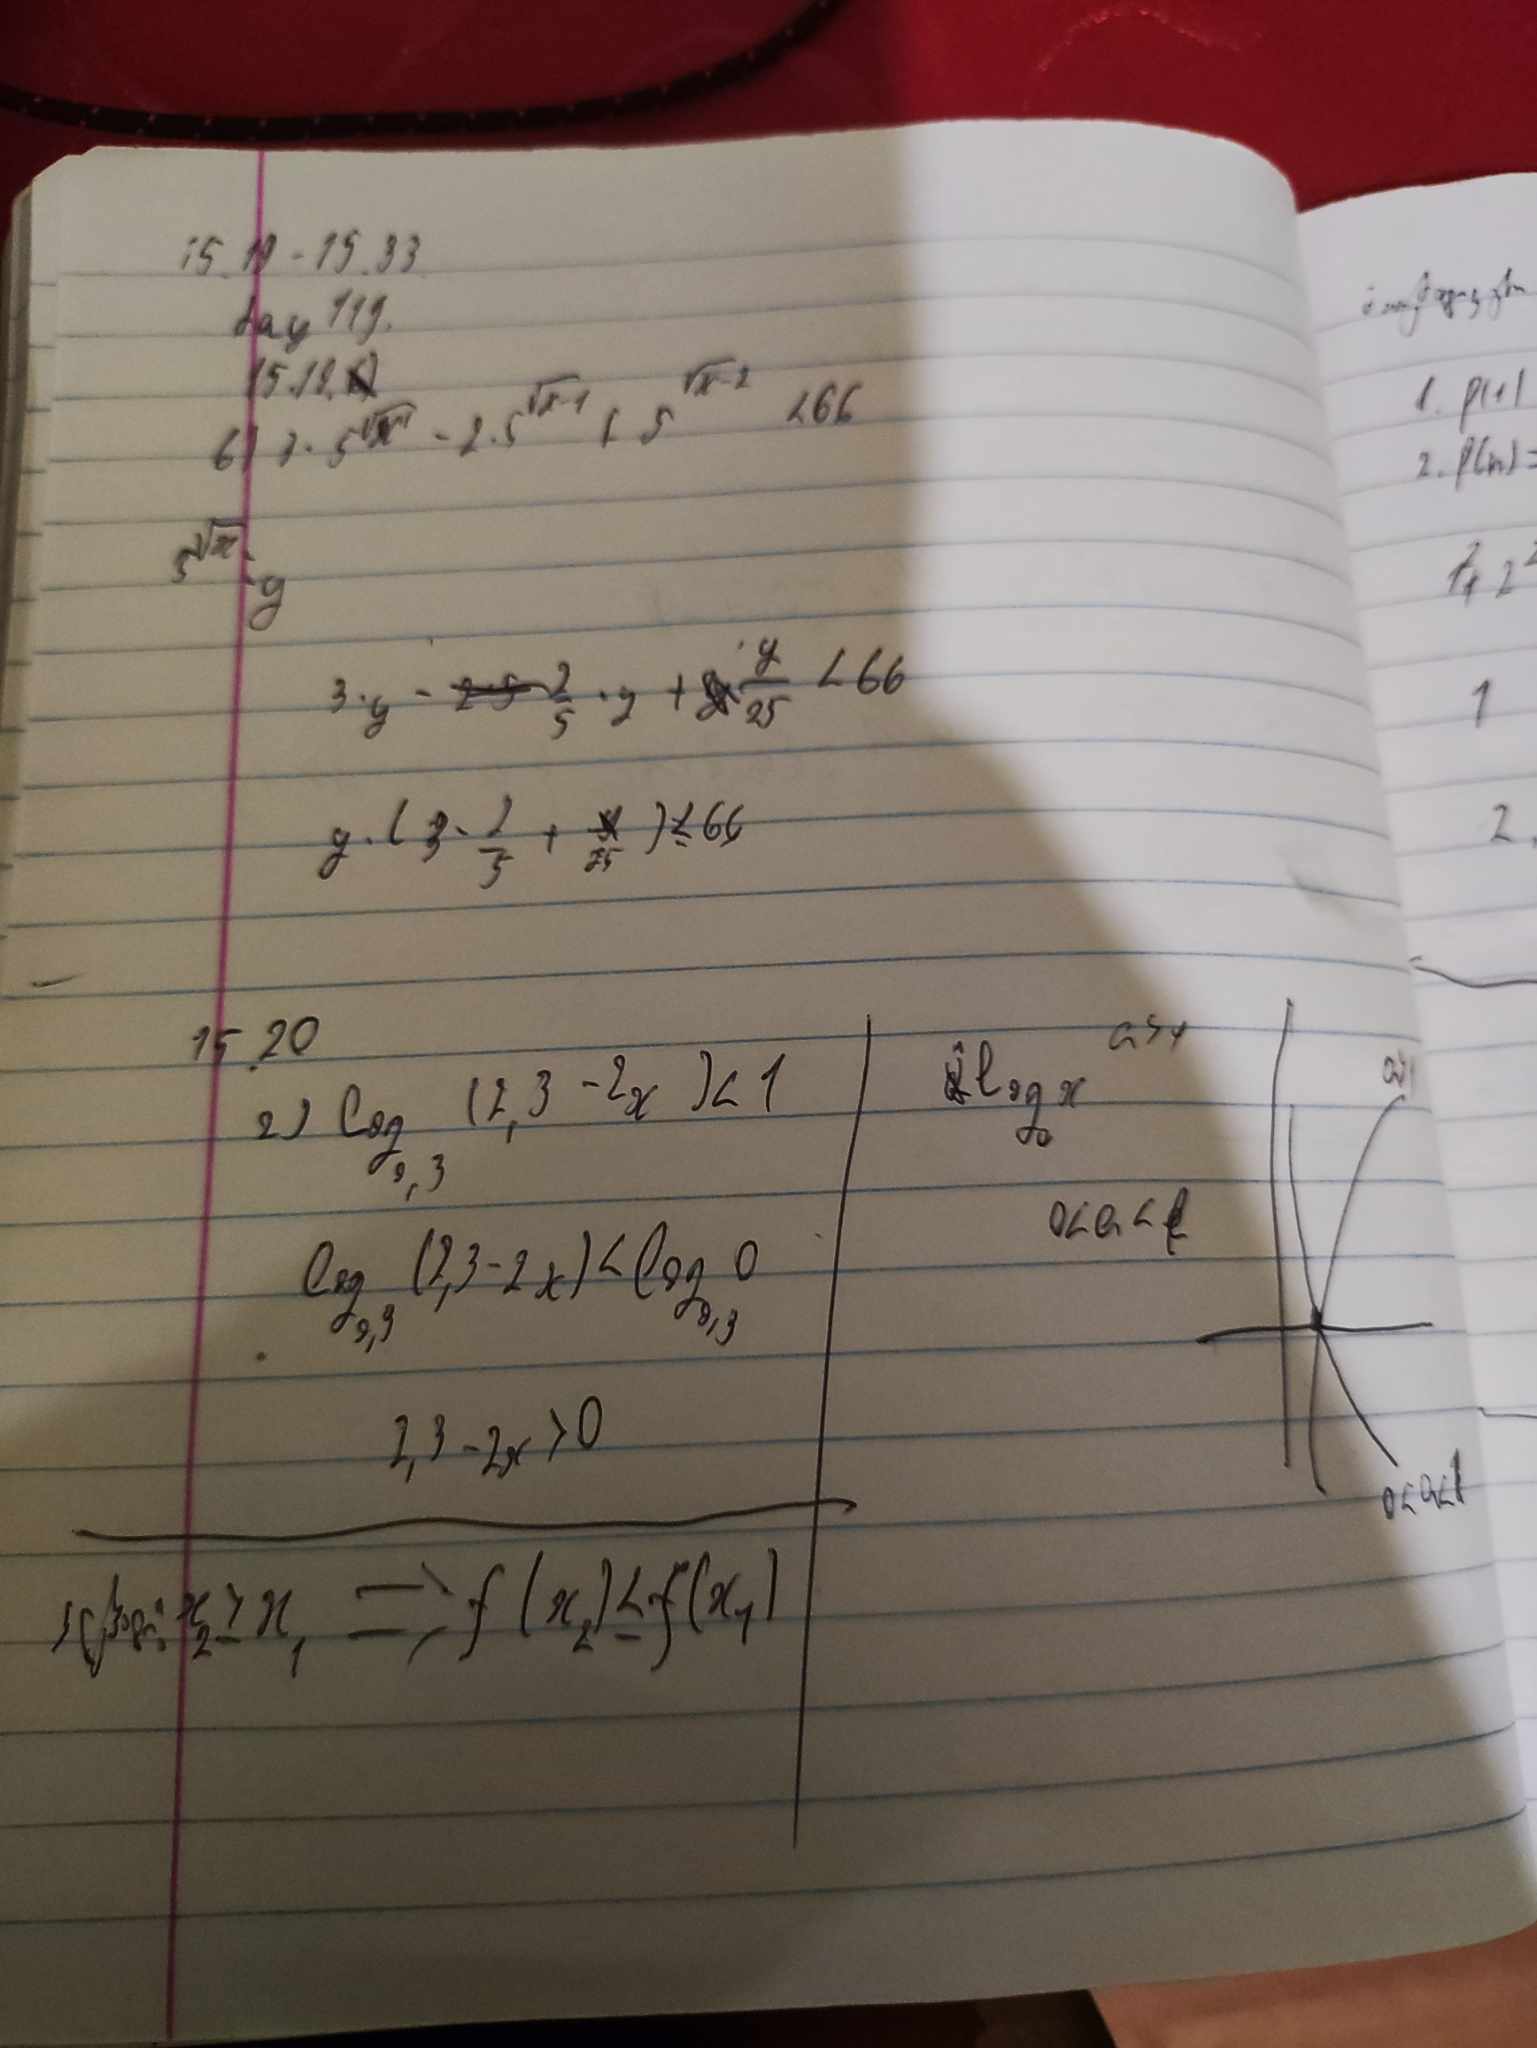 15.19 - 15.33
day 119.
15.19.
6) 3 · 5^√x - 2·5^√x-1 + 5^√x-2 <66
5^√x = y
3·y - 2/5 ·y + y/25 <66
y·(3 - 2/5 + 1/25) <66
15.20
2) log₀,₃ (2,3 - 2x) < 1
log₀,₃ (2,3 - 2x) < log₀,₃ 0
2,3 - 2x > 0
x₂ ≥ x₁ => f(x₂) ≤ f(x₁)
logₐ x a>1
0<a<1
a>1
0<a<1
1. P(1)
2. P(n)=
1
2.